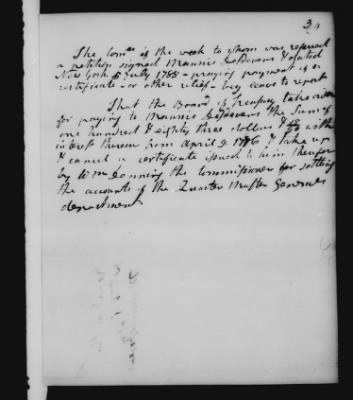 The Come of the week to whom was referred
a petition signed Maurice DesDevens & dated
New York 5 July 1788 - praying payment of a
certificate - or other relief - beg leave to report
That the Board of Treasury take order
for paying to Maurice DesDevens the Sum of
one hundred & eighty three dollars & with
interest thereon from April 2 1776 & take up
& cancel a certificate issued to him therefor
by Wm Denning the Commissioner for settling
the accounts of the Quarter Master Generals
department